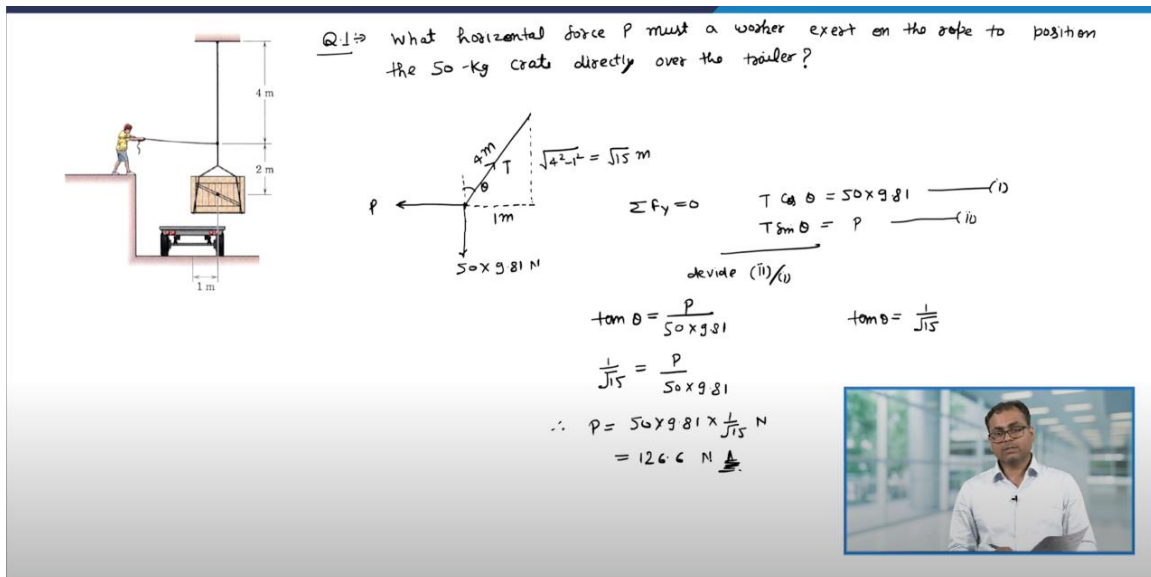 Q.1⇒ What horizontal force P must a worker exert on the rope to position
the 50-Kg crate directly over the trailer?
4 m
2 m
1 m
4m
T
θ
P
1m
50×9.81 N
√4²-1² = √15 m
ΣFy=0
T Cos θ = 50×9.81 —(i)
T Sin θ = P —(ii)
devide (ii)/(i)
tan θ = P/50×9.81
tan θ = 1/√15
1/√15 = P/50×9.81
∴ P = 50×9.81×1/√15 N
= 126.6 N